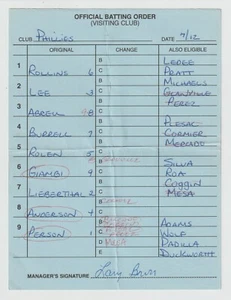 OFFICIAL BATTING ORDER
(VISITING CLUB)
CLUB PHILLIES DATE 4/12
ORIGINAL CHANGE ALSO ELIGIBLE
1 ROLLINS 6 B LEDEE
C PRATT
2 LEE 3 B MICHAELS
C GLANVILLE
3 ABREU 8 B PEREZ
C
4 BURRELL 7 B PLESAC
C CORMIER
5 ROLEN 5 B MERCADO
C
6 GIAMBI 9 B GLANVILLE SILVA
C ROA
7 LIEBERTHAL 2 B COGGIN
C MESA
8 ANDERSON 4 B
C
9 PERSON 1 B ADAMS
C WOLF
D MESA PADILLA
E DUCKWORTH
MANAGER'S SIGNATURE Larry Bowa